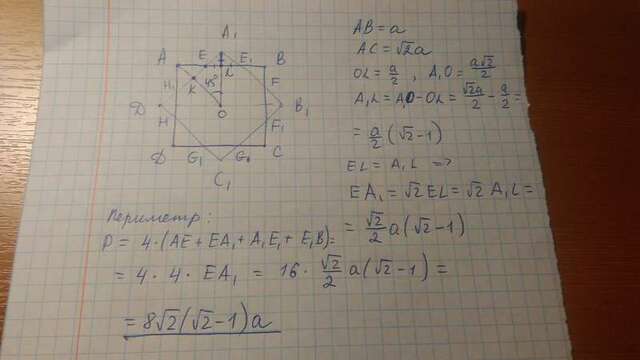 A₁
A E E₁ B
L
H₁ K 45° F
D₁ O B₁
H F₁
D G₁ G C
C₁
AB = a
AC = √2a
OL = a/2 , A₁O = a√2/2
A₁L = A₁O - OL = √2a/2 - a/2 =
= a/2 (√2-1)
EL = A₁L =>
EA₁ = √2 EL = √2 A₁L =
= √2/2 a(√2-1)
Периметр:
P = 4·(AE + EA₁ + A₁E₁ + E₁B) =
= 4·4·EA₁ = 16·√2/2 a(√2-1) =
= 8√2(√2-1)a